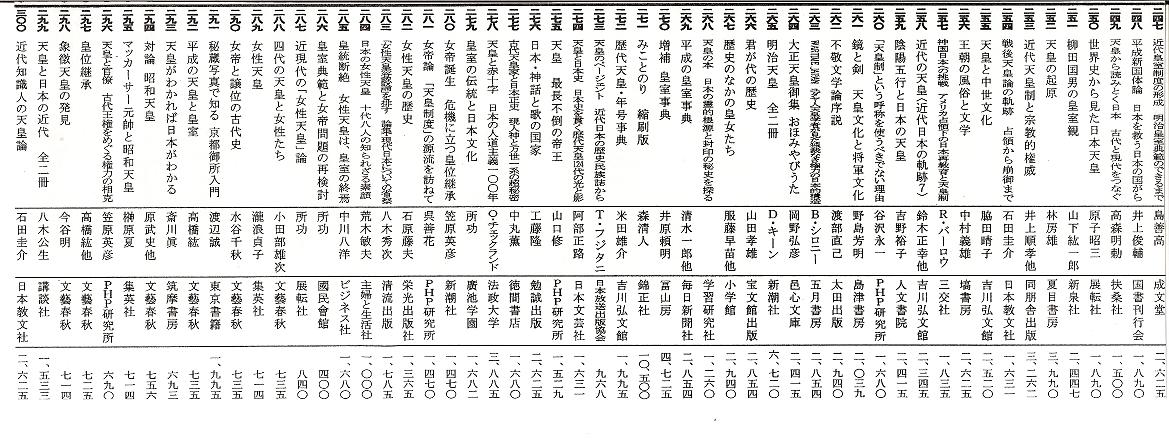 二四七 近代皇室制度の形成 明治皇室典範のできるまで 島善高 成文堂 二、六二五
二四八 平成新国体論 日本を救う日本の国がら 井上俊輔 国書刊行会 一、八九〇
二四九 天皇から読みとく日本 古代と現代をつなぐ 高森明勅 扶桑社 一、五〇〇
二五〇 世界史から見た日本天皇 原子昭三 展転社 一、八九〇
二五一 柳田国男の皇室観 山下紘一郎 新泉社 二、四四七
二五二 天皇の起原 林房雄 夏目書房
二五三 近代天皇制と宗教的権威 井上順孝他 同朋舎出版
二五四 戦後天皇論の軌跡 占領から崩御まで 石田圭介 日本教文社 一、六三一
二五五 天皇と中世文化 脇田晴子 吉川弘文館 二、五二〇
二五六 王朝の風俗と文学 中村義雄 塙書房 二、六二五
二五七 神国日本への挑戦 アメリカ占領下の日本再教育と天皇制 R・バーロウ 三交社
二五八 近代の天皇〈近代日本の軌跡7〉 鈴木正幸他 吉川弘文館
二五九 陰陽五行と日本の天皇 吉野裕子 人文書院 二、四一五
二六〇 「天皇制」という呼称を使うべきでない理由 谷沢永一 PHP研究所 一、六八〇
二六一 鏡と剣 天皇文化と将軍文化 野島芳明 島津書房 二、〇三九
二六二 不敬文学論序説 渡部直己 太田出版 二、九四〇
二六三 B・シロニー 五月書房
二六四 大正天皇御集 おほみやびうた 岡野弘彦 邑心文庫 二、四一五
二六五 明治天皇 全二冊 D・キーン 新潮社 六、七二〇
二六六 君が代の歴史 山田孝雄 宝文館出版 二、八五四
二六七 歴史のなかの皇女たち 服藤早苗他 小学館 二、九四〇
二六八 天皇の本 日本の霊的根源と封印の秘史を探る 学習研究社 一、二六〇
二六九 平成の皇室事典 清水一郎他 毎日新聞社 二、八五四
二七〇 増補 皇室事典 井原頼明 冨山房 四、七二五
二七一 みことのり 縮刷版 森清人 錦正社 一〇、五〇〇
二七二 歴代天皇・年号事典 米田雄介 吉川弘文館 一、九九五
二七三 天皇のページェント 近代日本の歴史民族誌から T・フジタニ 日本放送出版協会 九六八
二七四 天皇の日本史 阿部正路 日本文芸社 一、六三一
二七五 天皇 最長不倒の帝王 山口修 PHP研究所
二七六 日本・神話と歌の国家 工藤隆 勉誠出版 二、六二五
二七七 古代天皇家と日本正史 現人神と万世一系の超秘密 中丸薫 徳間書店 一、六八〇
二七八 天皇と赤十字 日本の人道主義一〇〇年 O・チェックランド 法政大学 三、八八五
二七九 皇室の伝統と日本文化 所功 廣池学園 一、六八二
二八〇 女帝誕生 危機に立つ皇位継承 笠原英彦 新潮社 一、四七〇
二八一 女帝論 「天皇制度」の源流を訪ねて 呉善花 PHP研究所 一、四七〇
二八二 女性天皇の歴史 石原藤夫 栄光出版社 一、三六五
二八三 八木秀次 清流出版 一、七八五
二八四 日本の女性天皇 十代八人の知られざる素顔 荒木敏夫 主婦と生活社 一、〇〇〇
二八五 皇統断絶 女性天皇は、皇室の終焉 中川八洋 ビジネス社 一、六八〇
二八六 皇室典範と女帝問題の再検討 所功 國民會館 四〇〇
二八七 近現代の「女性天皇」論 所功 展転社 八四〇
二八八 四代の天皇と女性たち 小田部雄次 文藝春秋 七三五
二八九 女性天皇 瀧浪貞子 集英社 七一四
二九〇 女帝と譲位の古代史 水谷千秋 文藝春秋 七三五
二九一 秘蔵写真で知る 京都御所入門 渡辺誠 東京書籍 一、九九五
二九二 平成の天皇と皇室 高橋紘 文藝春秋 七一四
二九三 天皇がわかれば日本がわかる 斎川眞 筑摩書房
二九四 対論 昭和天皇 原武史他 文藝春秋 七五六
二九五 マッカーサー元帥と昭和天皇 榊原夏 集英社 七一四
二九六 天皇と官僚 古代王権をめぐる権力の相克 笠原英彦 PHP研究所 六九〇
二九七 皇位継承 高橋紘他 文藝春秋 七二五
二九八 象徴天皇の発見 今谷明 文藝春秋 七一四
二九九 天皇と日本の近代 全二冊 八木公生 講談社 一、五三三
三〇〇 近代知識人の天皇論 石田圭介 日本教文社 二、六二五